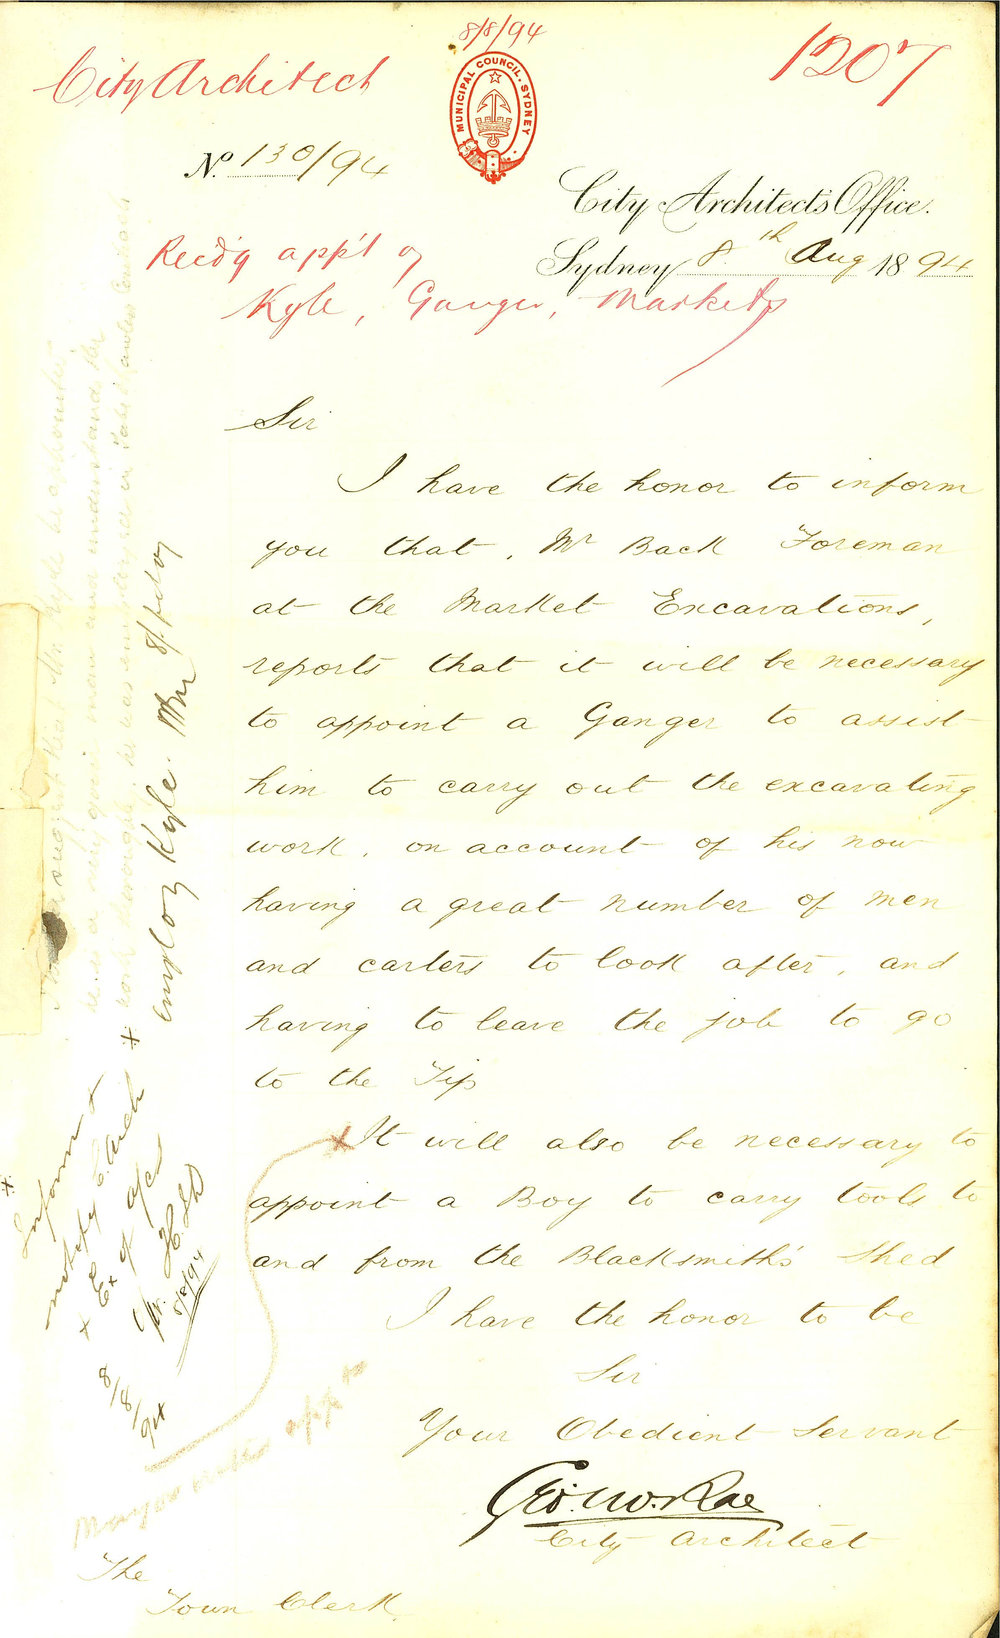 8/8/94
1207
City Architect
MUNICIPAL COUNCIL. SYDNEY
No. 130/94
City Architect's Office.
Sydney 8th Aug 1894
Rec'd'g app't of
Kyle, Ganger, Markets
Sir
I have the honor to inform
you that, Mr Back Foreman
at the Market Excavations,
reports that it will be necessary
to appoint a Ganger to assist
him to carry out the excavating
work, on account of his now
having a great number of men
and carters to look after, and
having to leave the job to go
to the Tip
x It will also be necessary to
appoint a Boy to carry tools to
and from the Blacksmith's Shed
I have the honor to be
Sir
Your Obedient Servant
Geo. McRae
City Architect
The
Town Clerk.
be appointed
he is a very good man and understands the
work he was employed in
employ Kyle
Inform &
notify C. Arch
+ Ex of
8/8/94
8/8/94
Mayor